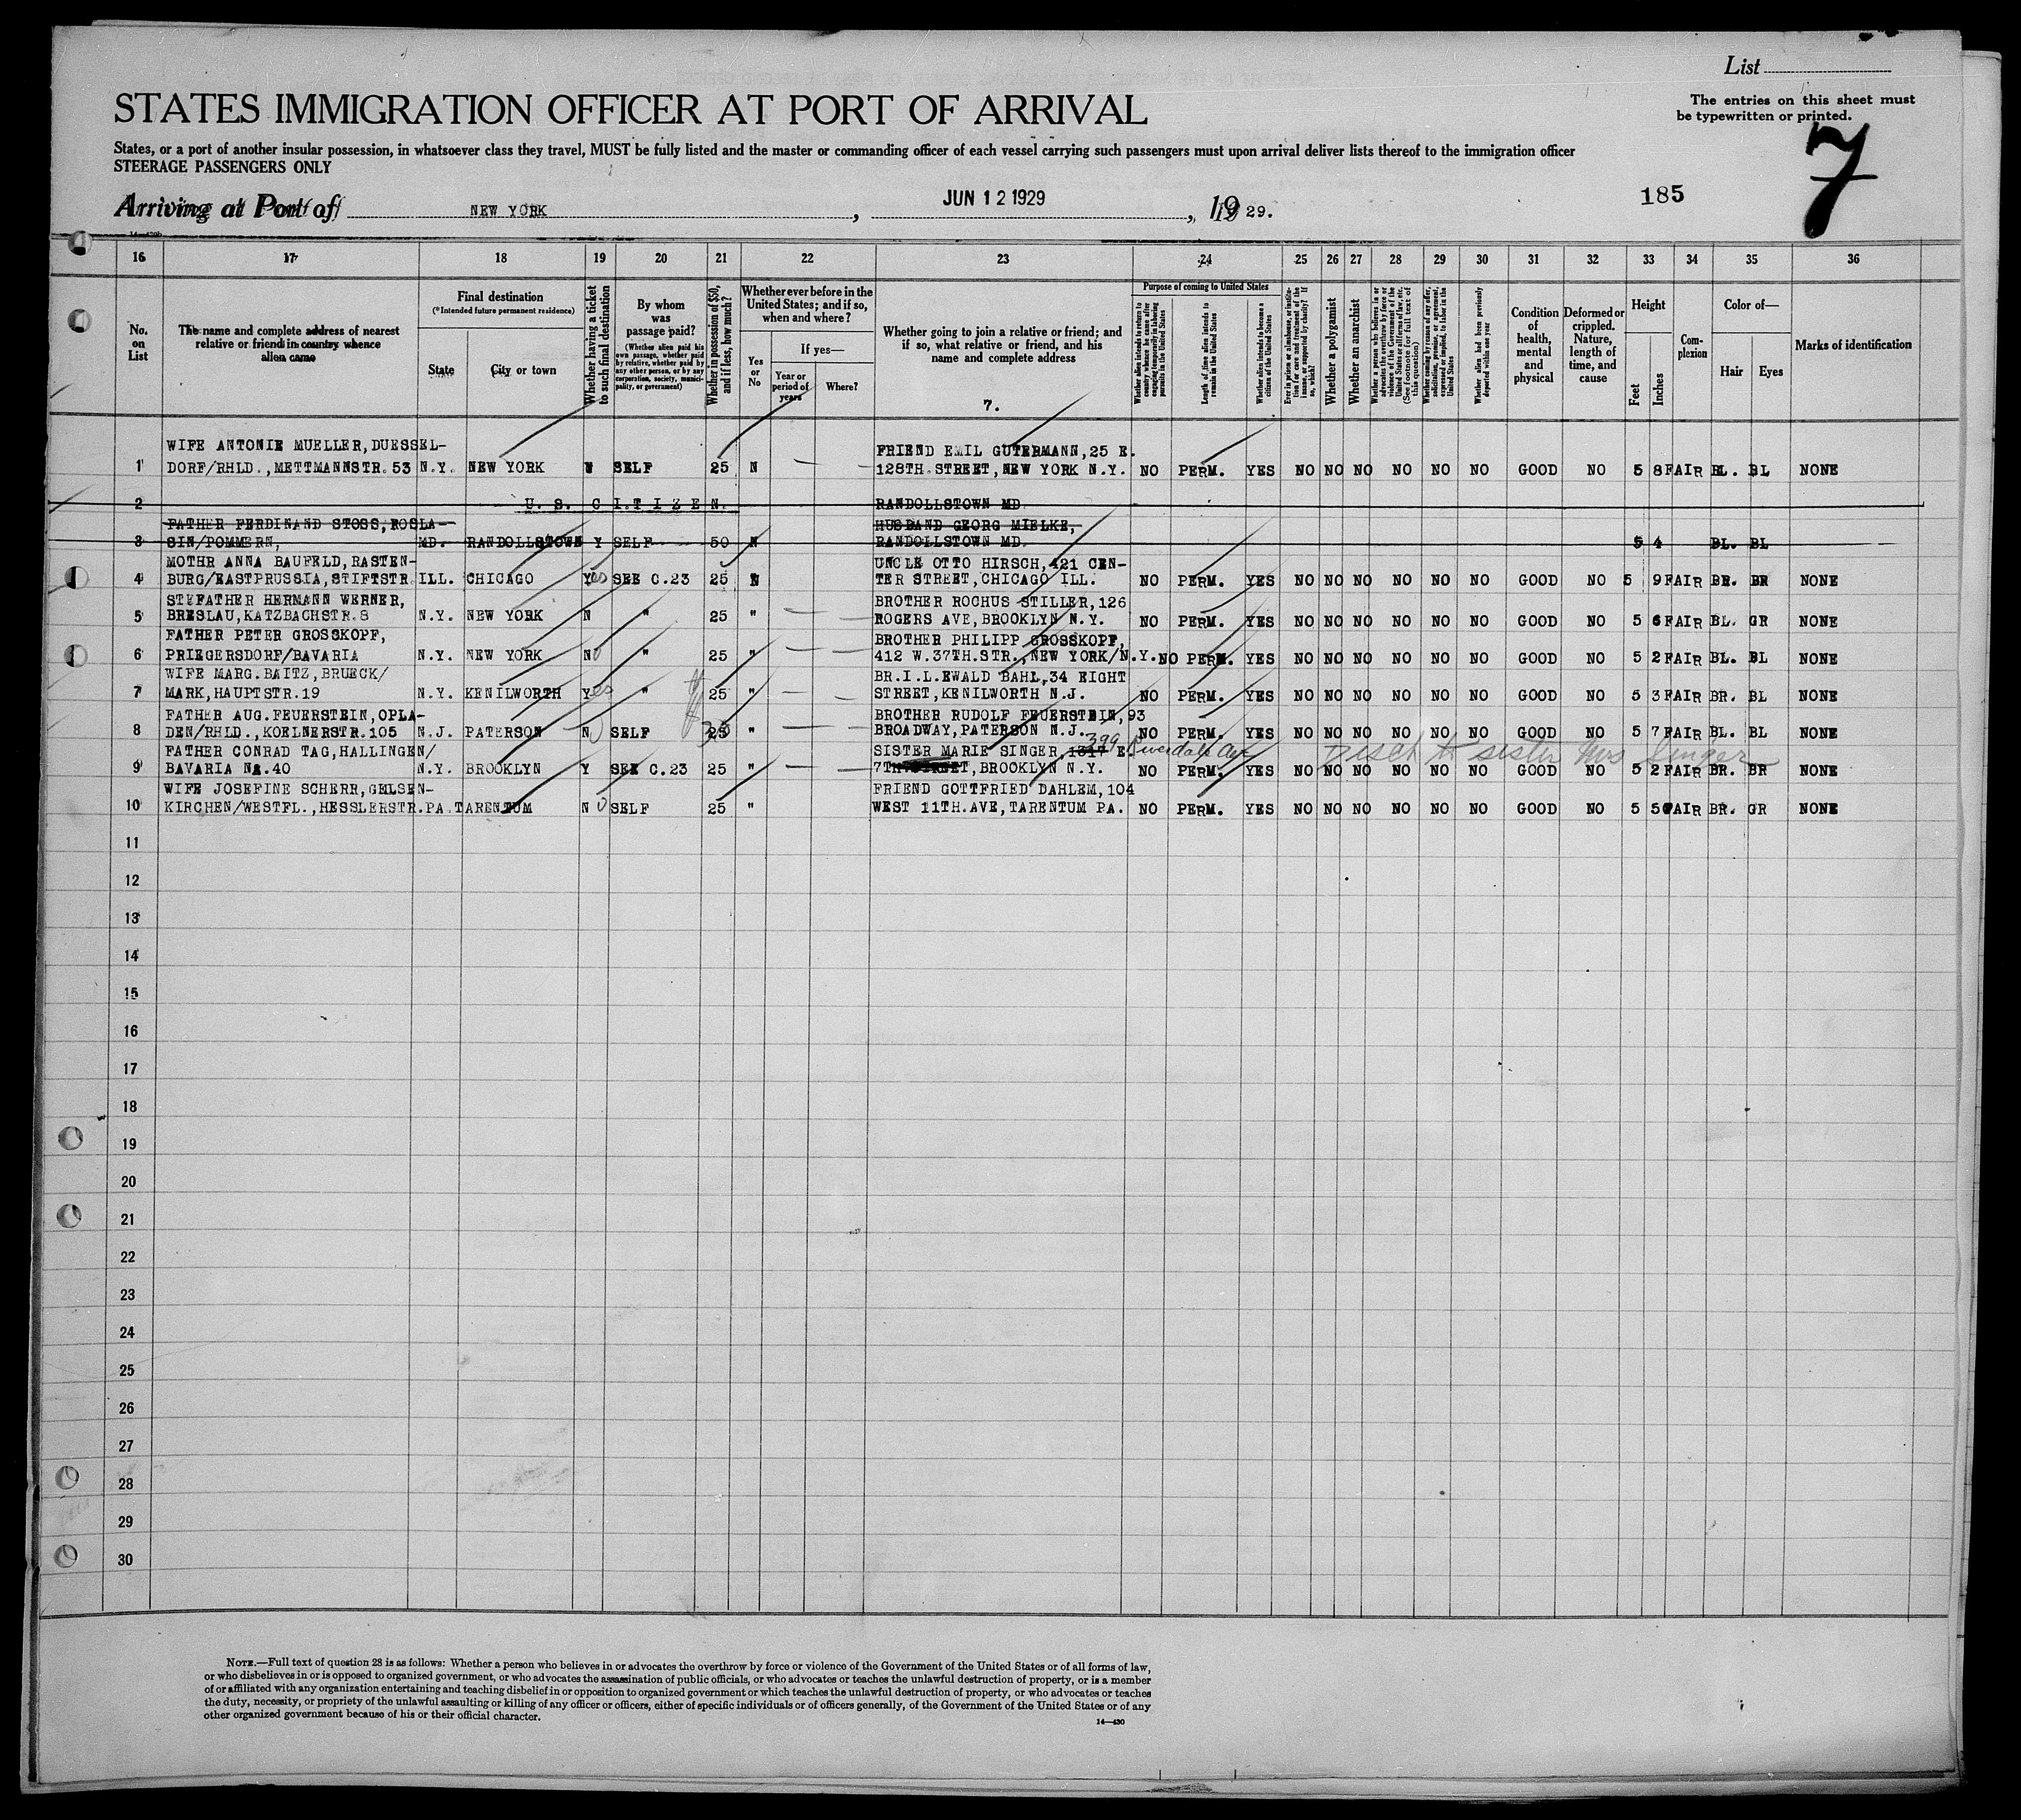 List
STATES IMMIGRATION OFFICER AT PORT OF ARRIVAL
The entries on this sheet must
be typewritten or printed.
States, or a port of another insular possession, in whatsoever class they travel, MUST be fully listed and the master or commanding officer of each vessel carrying such passengers must upon arrival deliver lists thereof to the immigration officer
STEERAGE PASSENGERS ONLY
7
185
Arriving at Port of NEW YORK, JUN 12 1929, 19 29.
16 17 18 19 20 21 22 23 24 25 26 27 28 29 30 31 32 33 34 35 36
No. on List
The name and complete address of nearest relative or friend in country whence alien came
Final destination
(*Intended future permanent residence)
State
City or town
Whether having a ticket to such final destination
By whom was passage paid?
(Whether alien paid his own passage, whether paid by relative, whether paid by any other person, or by any corporation, society, municipality, or government)
Whether in possession of $50, and if less, how much?
Whether ever before in the United States; and if so, when and where?
Yes or No
If yes—
Year or period of years
Where?
Whether going to join a relative or friend; and if so, what relative or friend, and his name and complete address
7.
Purpose of coming to United States
Whether alien intends to return to country whence he came after engaging temporarily in laboring pursuits in the United States
Length of time alien intends to remain in the United States
Whether alien intends to become a citizen of the United States
Ever in prison or almshouse, or institution for care and treatment of the insane, or supported by charity? If so, which?
Whether a polygamist
Whether an anarchist
Whether a person who believes in or advocates the overthrow by force or violence of the Government of the United States or all forms of law, etc. (See footnote for full text of this question)
Whether coming by reason of any offer, solicitation, promise, or agreement, expressed or implied, to labor in the United States
Whether alien had been previously deported within one year
Condition of health, mental and physical
Deformed or crippled. Nature, length of time, and cause
Height
Feet
Inches
Complexion
Color of—
Hair
Eyes
Marks of identification
WIFE ANTONIE MUELLER, DUESSEL- FRIEND EMIL GUTERMANN, 25 E.
1 DORF/RHLD., METTMANNSTR. 53 N.Y. NEW YORK N SELF 25 N — — 128TH. STREET, NEW YORK N.Y. NO PERM. YES NO NO NO NO NO NO GOOD NO 5 8 FAIR BL. BL NONE
2 U. S. CITIZEN. RANDOLLSTOWN MD
FATHER FERDINAND STOSS, ROSLA- HUSBAND GEORG MIELKE,
3 SIN/POMMERN, MD. RANDOLLSTOWN Y SELF 50 N RANDOLLSTOWN MD. 5 4 BL. BL
MOTHR ANNA BAUFELD, RASTEN- UNCLE OTTO HIRSCH, 421 CEN-
4 BURG/EASTPRUSSIA, STIFTSTR. ILL. CHICAGO Yes SEE C.23 25 N TER STREET, CHICAGO ILL. NO PERM. YES NO NO NO NO NO NO GOOD NO 5 9 FAIR BR. BR NONE
STEFATHER HERMANN WERNER, BROTHER ROCHUS STILLER, 126
5 BRESLAU, KATZBACHSTR. 8 N.Y. NEW YORK N " 25 " — — ROGERS AVE, BROOKLYN N.Y. NO PERM. YES NO NO NO NO NO NO GOOD NO 5 6 FAIR BL. GR NONE
FATHER PETER GROSSKOPF, BROTHER PHILIPP GROSSKOPF,
6 PRIEGERSDORF/BAVARIA N.Y. NEW YORK No " 25 " — — 412 W. 37TH. STR., NEW YORK/N.Y. NO PERM. YES NO NO NO NO NO NO GOOD NO 5 2 FAIR BL. BL NONE
WIFE MARG. BAITZ, BRUECK/ BR. I. L. EWALD BAHL, 34 EIGHT
7 MARK, HAUPTSTR. 19 N.Y. KENILWORTH Yes " 25 " — — STREET, KENILWORTH N.J. NO PERM. YES NO NO NO NO NO NO GOOD NO 5 3 FAIR BR. BL NONE
FATHER AUG. FEUERSTEIN, OPLA- BROTHER RUDOLF FEUERSTEIN, 93
8 DEN/RHLD., KOELNERSTR. 105 N.J. PATERSON No SELF 25 " — — BROADWAY, PATERSON N.J. NO PERM. YES NO NO NO NO NO NO GOOD NO 5 7 FAIR BL. BL NONE
FATHER CONRAD TAG, HALLINGEN/ SISTER MARIE SINGER, 1317 E. 399 Riverdale Ave Disch to sister Mrs Singer
9 BAVARIA No. 40 N.Y. BROOKLYN Y SEE C.23 25 " — — 7TH STREET, BROOKLYN N.Y. NO PERM. YES NO NO NO NO NO NO GOOD NO 5 2 FAIR BR. BR NONE
WIFE JOSEFINE SCHERR, GELSEN- FRIEND GOTTFRIED DAHLEM, 104
10 KIRCHEN/WESTFL., HESSLERSTR. PA. TARENTUM No SELF 25 " WEST 11TH. AVE, TARENTUM PA. NO PERM. YES NO NO NO NO NO NO GOOD NO 5 5 FAIR BR. GR NONE
11
12
13
14
15
16
17
18
19
20
21
22
23
24
25
26
27
28
29
30
NOTE.—Full text of question 28 is as follows: Whether a person who believes in or advocates the overthrow by force or violence of the Government of the United States or of all forms of law,
or who disbelieves in or is opposed to organized government, or who advocates the assassination of public officials, or who advocates or teaches the unlawful destruction of property, or is a member
of or affiliated with any organization entertaining and teaching disbelief in or opposition to organized government or which teaches the unlawful destruction of property, or who advocates or teaches
the duty, necessity, or propriety of the unlawful assaulting or killing of any officer or officers, either of specific individuals or of officers generally, of the Government of the United States or of any
other organized government because of his or their official character.
14—430